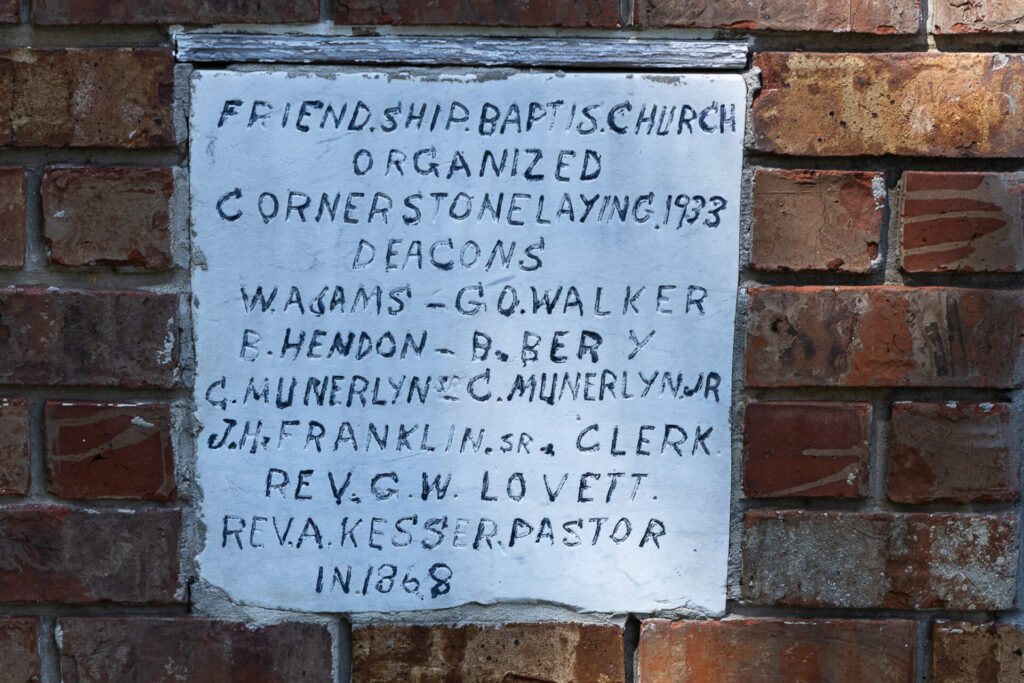 FRIEND.SHIP.BAPTIS.CHURCH
ORGANIZED
CORNERSTONELAYING.1933
DEACONS
W.ADAMS - G.O.WALKER
B.HENDON - B.BERY
G.MUNERLYN SR C.MUNERLYN.JR
J.H.FRANKLIN.SR., CLERK.
REV.G.W. LOVETT.
REV.A.KESSER.PASTOR
IN.1868